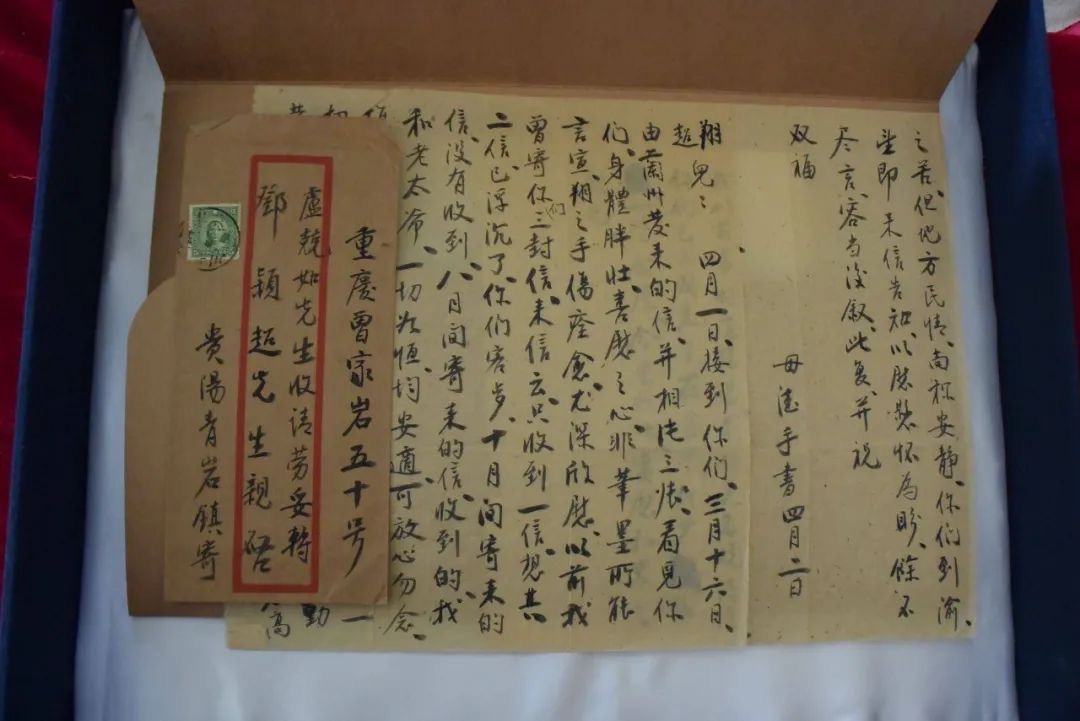 之苦、但他方民情、尚称安静、你们到渝、
望即来信告知、以慰愁怀為盼、餘不
尽言、容当後叙、此复、并祝
双福
母德手書四月二日
翔超兒：四月一日、接到你们、三月十六日、
由蘭州发来的信、并相片三张、看見你
们、身體胖壮、喜慰之心、非筆墨所能
言宣、翔之手傷痊愈、尤深欣慰、以前我
曾寄你们三封信、来信云、只收到一信、想其
二信、已浮沉了、你们客岁、十月间寄来的
信、没有收到、八月间寄来的信、收到的、我
和老太爷、一切如恒、均安適、可放心勿念、
重慶曾家岩五十号
盧競如先生收請劳妥轉
鄧穎超先生親啓
貴陽青岩鎮寄